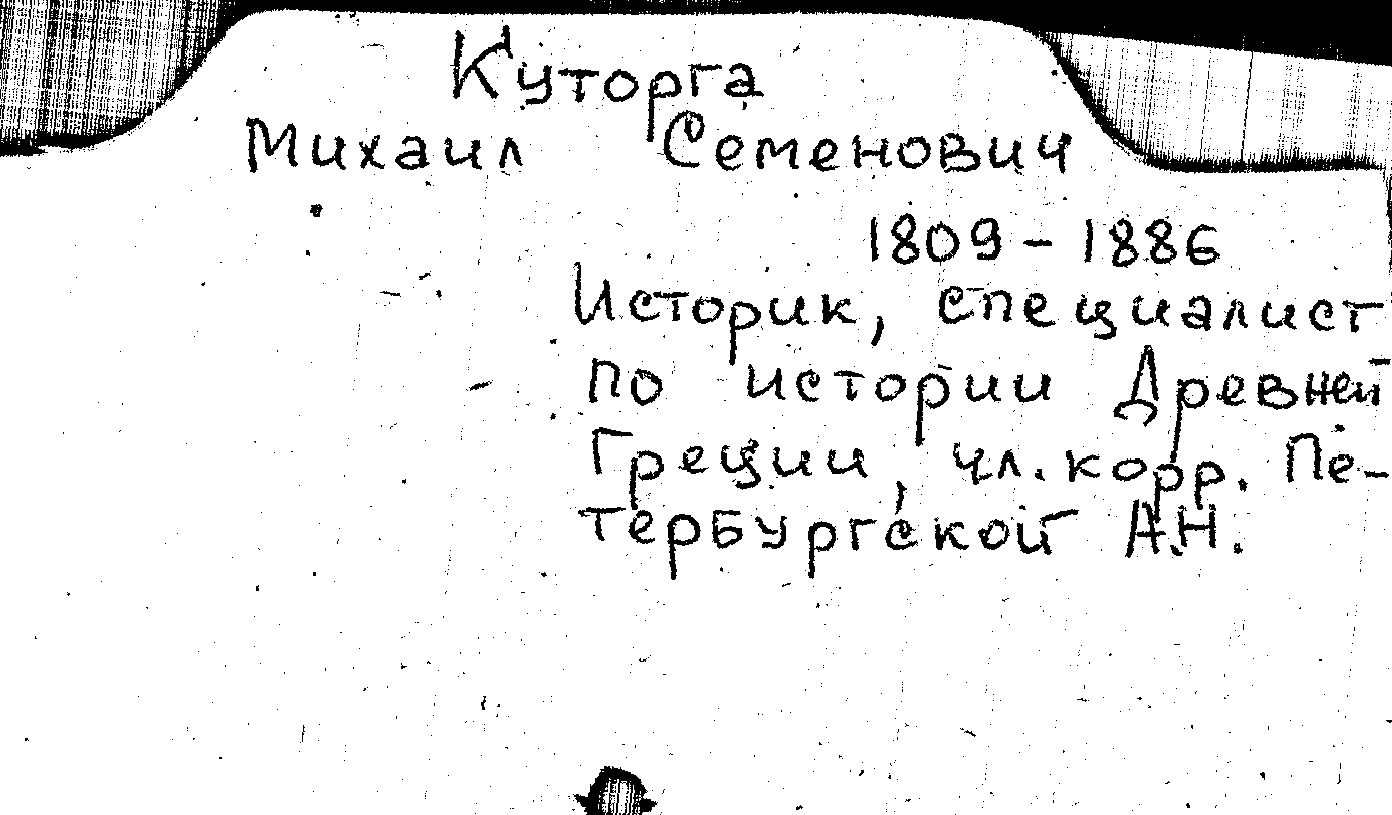 Куторга
Михаил Семенович
1809 - 1886
Историк, специалист
по истории Древней
Греции, чл. корр. Пе-
тербургской А.Н.